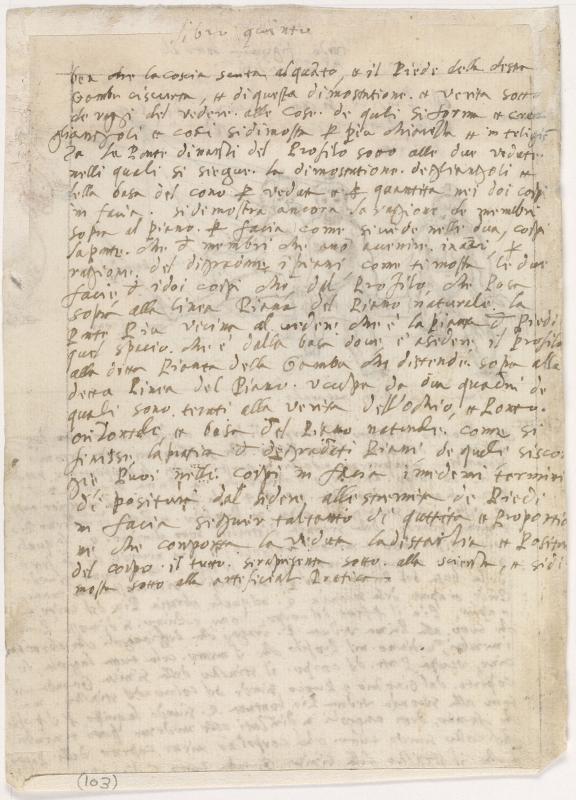 libro quinto
ben che la coscia senta alquato, et il Piede della destra
Gamba ci scurta, et di questa dimostratione. et verita sotto
de ragi del vedere. alle Cose. de quali si forma et
gliangoli et cosi si dimostra per piu chiarezza et in telige
za la Ponte dinarsi del Profilo sotto alle due vedute.
nelli quali si siegue. la demostratione. degliangoli et
della basa del cono per veduta et per quantita nei doi corpi
in facia. si demostra ancora la ragione de membri
sopra al piano. per facia come si vede nelli dua, corpi
la parte. che de membri che ano avenire. inanzi per
ragione. del digradare i piani come ti mostra le due
facie de i doi corpi che dal Profilo, che Posa
sopra alla linea Piana del Piano naturale. la
Parte Piu vicina al vedere che è la pianta de Piedi
quel spacio. che è dalla basa dove è a sedere il Profilo
alla ditta Pianta della Gamba che distende. sopra alla
detta Linea del Piano. occupa da dua quadri de
quali sono. tirati alla verita dell'ochio, et Ponto.
orizontale et basa del Piano naturale. come si
finisse la pianta de degradati Piani de quali si
Puoi nelli corpi in facia i medemi termini
di positura dal sedere alle stremita de Piedi
in facia seguir taltanto de quttita et Proportio
ne che comporta la Veduta la distantia et Positura
del corpo. il tutto. si rapresenta sotto. alla scientia, et si di
mostra sotto alla artificial Pratica.
(103)